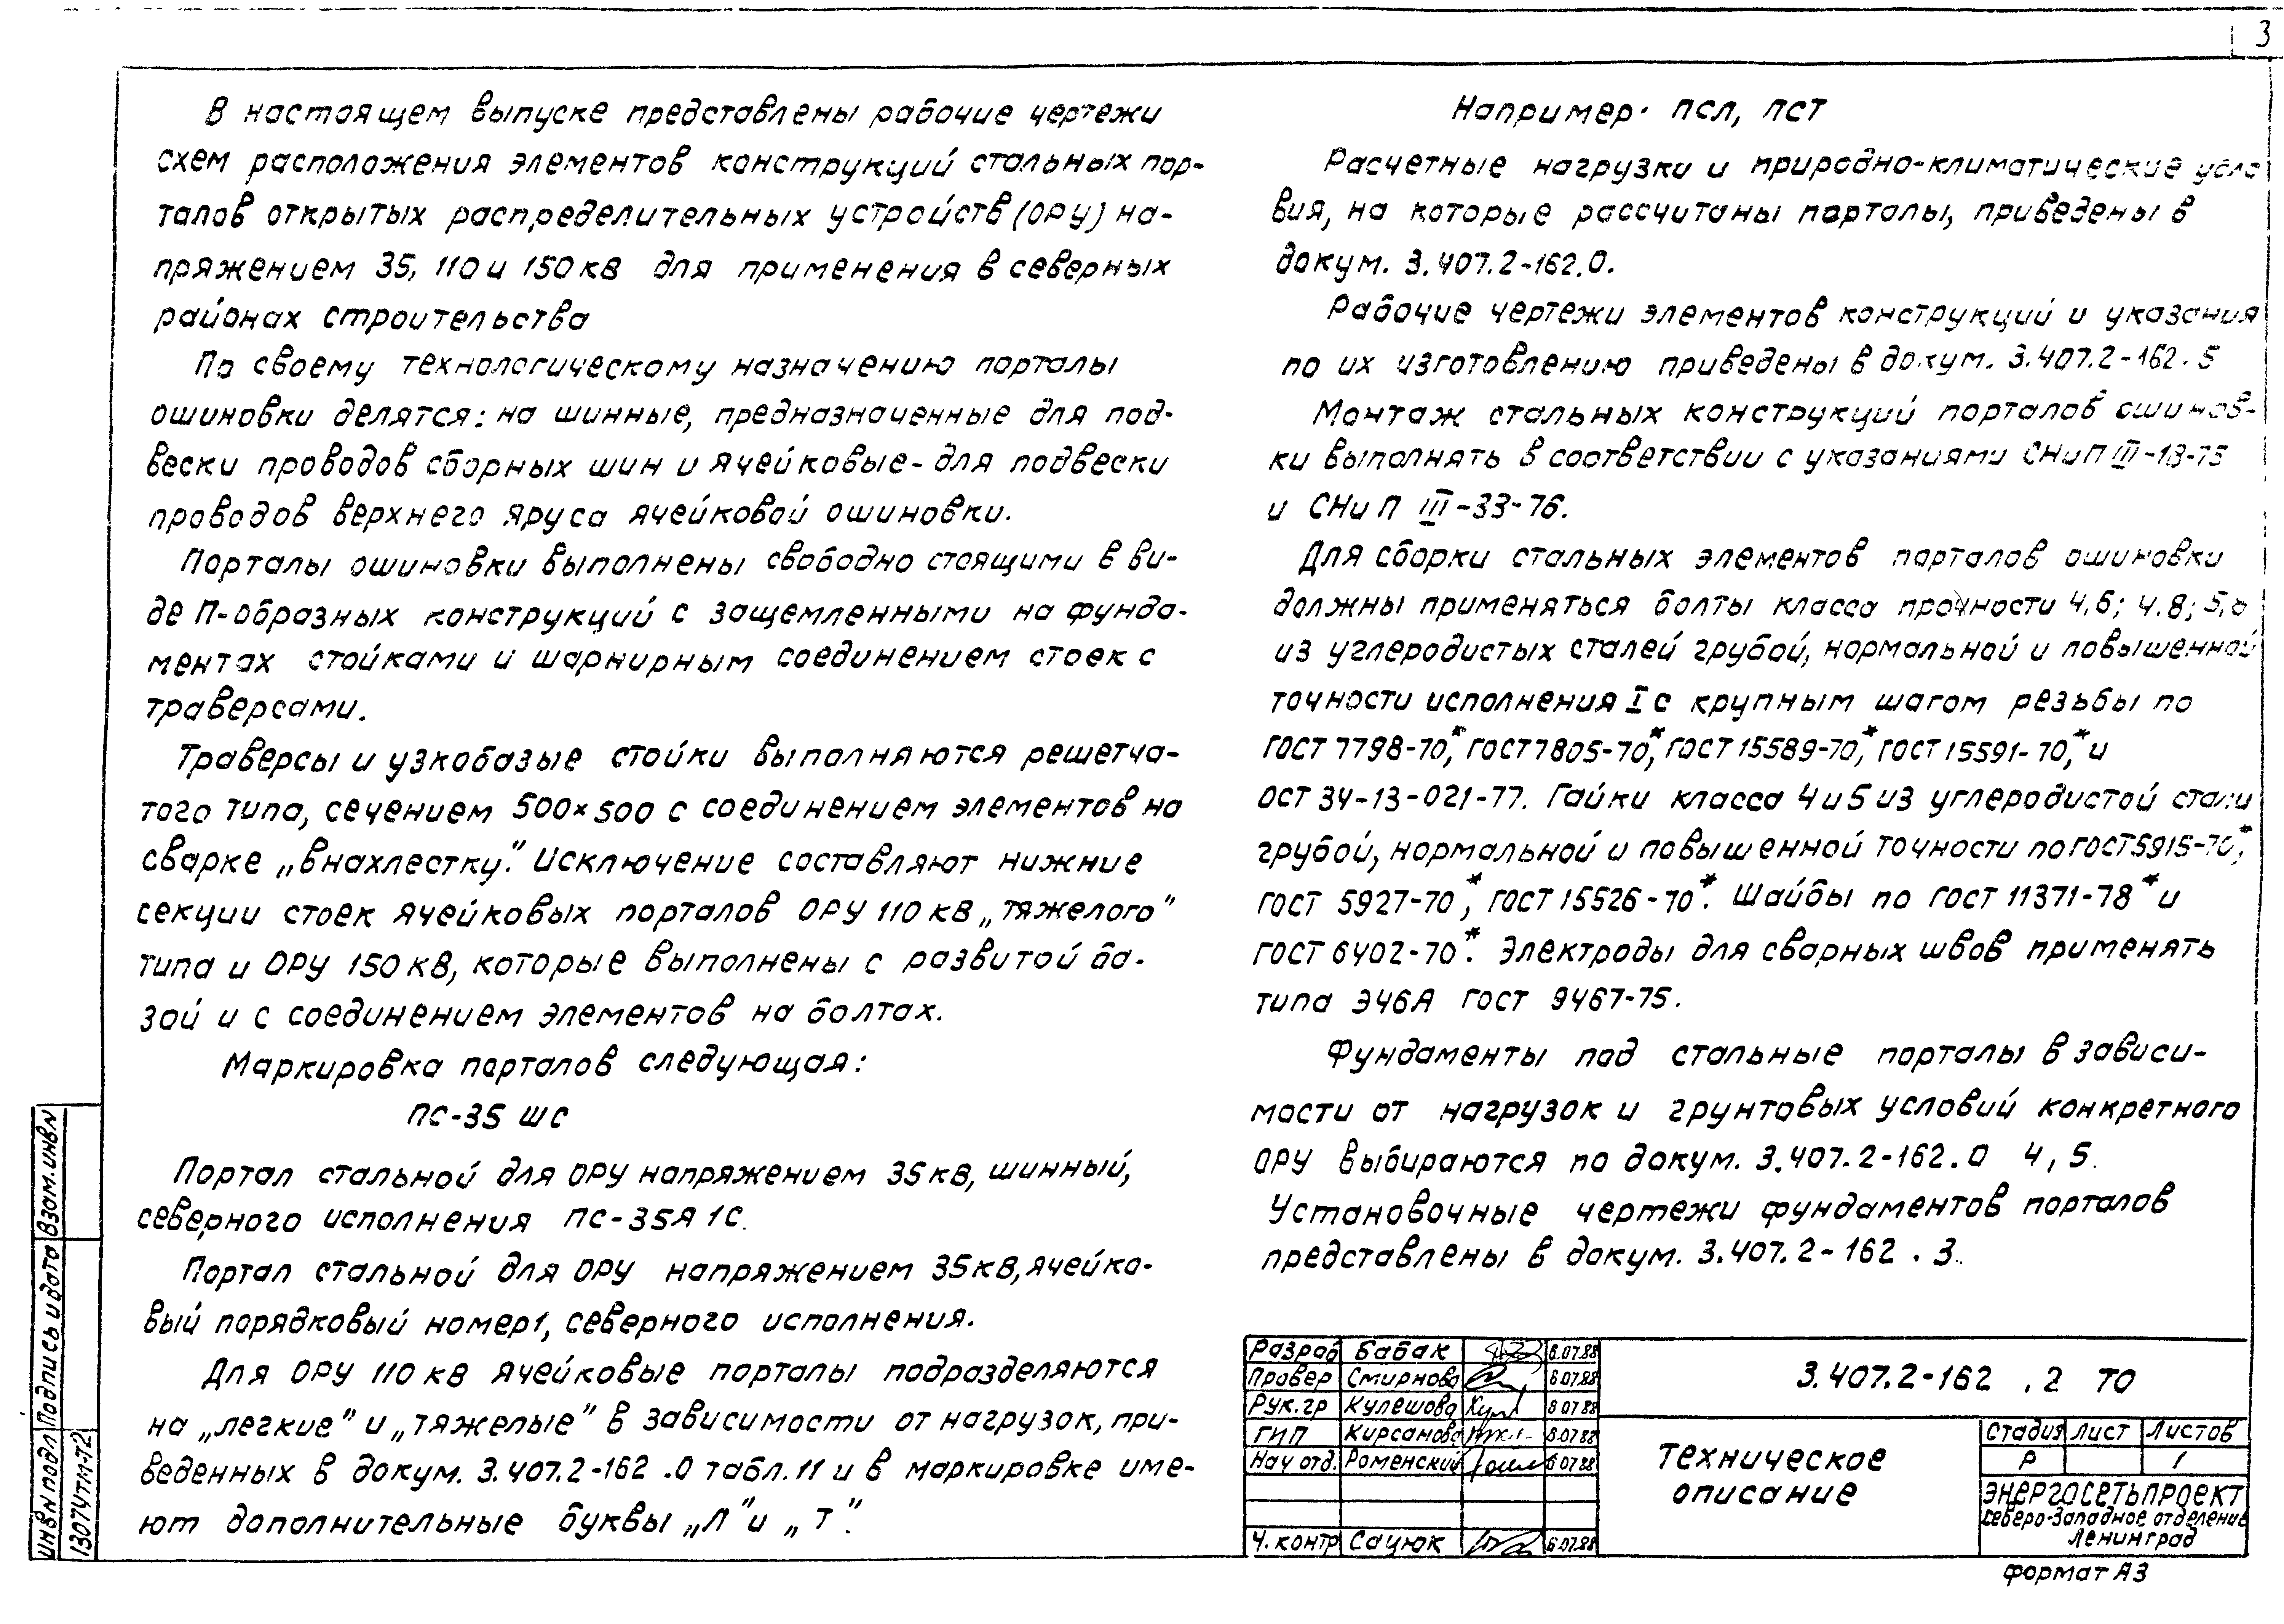 3
В настоящем выпуске представлены рабочие чертежи
схем расположения элементов конструкций стальных пор-
талов открытых распределительных устройств (ОРУ) на-
пряжением 35, 110 и 150 кВ для применения в северных
районах строительства
По своему технологическому назначению порталы
ошиновки делятся: на шинные, предназначенные для под-
вески проводов сборных шин и ячейковые - для подвески
проводов верхнего яруса ячейковой ошиновки.
Порталы ошиновки выполнены свободно стоящими в ви-
де П-образных конструкций с защемленными на фунда-
ментах стойками и шарнирным соединением стоек с
траверсами.
Траверсы и узкобазые стойки выполняются решетча-
того типа, сечением 500×500 с соединением элементов на
сварке „внахлестку". Исключение составляют нижние
секции стоек ячейковых порталов ОРУ 110 кВ „тяжелого"
типа и ОРУ 150 кВ, которые выполнены с развитой ба-
зой и с соединением элементов на болтах.
Маркировка порталов следующая:
ПС-35 ШС
Портал стальной для ОРУ напряжением 35 кВ, шинный,
северного исполнения ПС-35Я 1С.
Портал стальной для ОРУ напряжением 35 кВ, ячейко-
вый порядковый номер 1, северного исполнения.
Для ОРУ 110 кВ ячейковые порталы подразделяются
на „легкие" и „тяжелые" в зависимости от нагрузок, при-
веденных в докум. 3.407.2-162 .0 табл. 11 и в маркировке име-
ют дополнительные буквы „Л" и „Т".
Например. ПСЛ, ПСТ
Расчетные нагрузки и природно-климатические усло
вия, на которые рассчитаны порталы, приведены в
докум. 3.407.2-162.0.
Рабочие чертежи элементов конструкций и указания
по их изготовлению приведены в докум. 3.407.2-162.5
Монтаж стальных конструкций порталов ошинов-
ки выполнять в соответствии с указаниями СНиП III-18-75
и СНиП III-33-76.
Для сборки стальных элементов порталов ошиновки
должны применяться болты класса прочности 4.6; 4.8; 5.6
из углеродистых сталей грубой, нормальной и повышенной
точности исполнения I с крупным шагом резьбы по
ГОСТ 7798-70*, ГОСТ 7805-70*, ГОСТ 15589-70*, ГОСТ 15591-70*, и
ОСТ 34-13-021-77. Гайки класса 4 и 5 из углеродистой стали
грубой, нормальной и повышенной точности по ГОСТ 5915-70*,
ГОСТ 5927-70*, ГОСТ 15526-70*. Шайбы по ГОСТ 11371-78* и
ГОСТ 6402-70*. Электроды для сварных швов применять
типа Э46А ГОСТ 9467-75.
Фундаменты под стальные порталы в зависи-
мости от нагрузок и грунтовых условий конкретного
ОРУ выбираются по докум. 3.407.2-162.0 4, 5.
Установочные чертежи фундаментов порталов
представлены в докум. 3.407.2-162 . 3.
Инв N подл Подпись и дата Взам. инв N
13074ТМ-Т2
Разраб Бабак 6.07.88
Провер Смирнова 6.07.88
Рук. гр Кулешова 8 07 88
ГИП Кирсанова 8.07.88
Нач отд. Роменский 6 07 88
Ч. контр Сацюк 6.07.88
3.407.2-162 .2 ТО
Техническое
описание
Стадия Лист Листов
Р 1
ЭНЕРГОСЕТЬПРОЕКТ
Северо-Западное отделение
Ленинград
формат А3